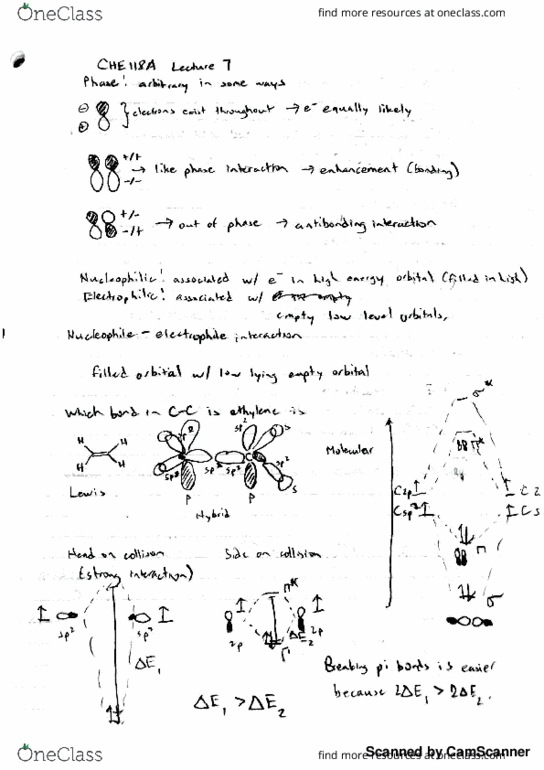 OneClass
find more resources at oneclass.com
CHE118A Lecture 7
Phase: arbitrary in some ways
⊖
⊕
electrons exist throughout → e⁻ equally likely
+/+
-/-
→ like phase interaction → enhancement (bonding)
+/-
-/+
→ out of phase → antibonding interaction
Nucleophilic: associated w/ e⁻ in high energy orbital (filled in high)
Electrophilic: associated w/
empty low level orbitals,
Nucleophile - electrophile interaction
filled orbital w/ low lying empty orbital
Which bond in C-C is ethylene is
H H
H H
Lewis
sp²
sp² sp²
sp²
C
P P
S
S
Hybrid
Molecular
σ*
π*
C2p
C2
Csp²
CS
π
σ
Head on collision
(strong interaction)
sp² sp²
ΔE₁
Side on collision
π*
2p 2p
ΔE₂
π
ΔE₁ > ΔE₂
Breaking pi bonds is easier
because 2ΔE₁ > 2ΔE₂.
OneClass
find more resources at oneclass.com
Scanned by CamScanner